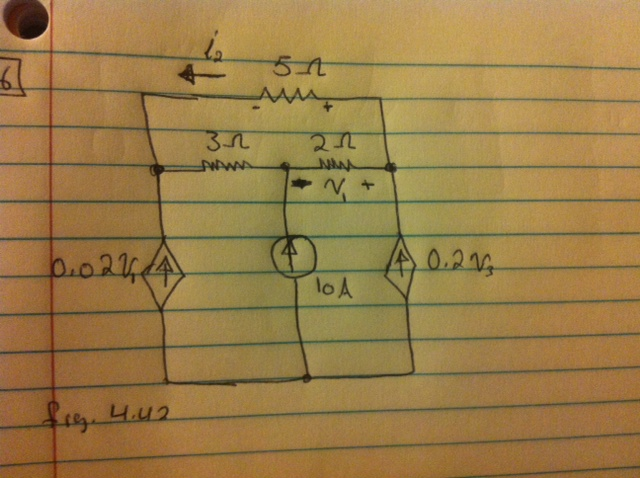 6
i₂
5Ω
- +
3Ω 2Ω
- V₁ +
0.02V₁ 10A 0.2V₃
fig. 4.42